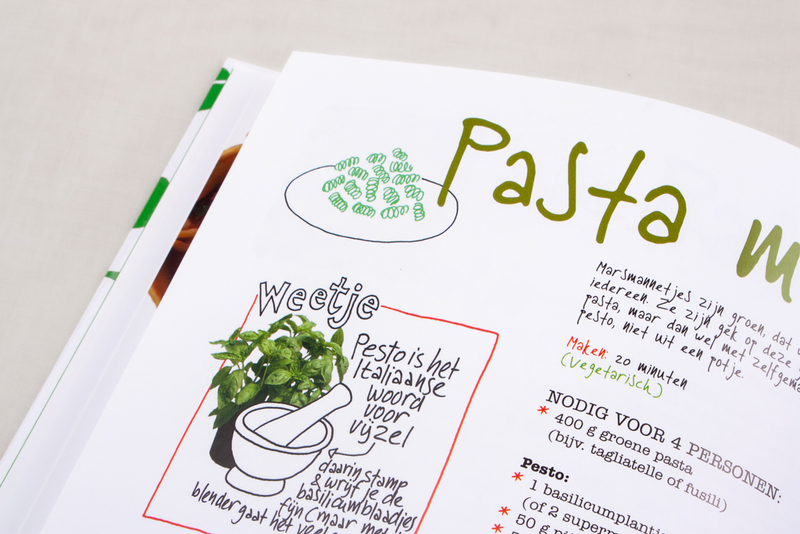 Pasta m
Weetje
Pesto is het
Italiaanse
woord
voor
vijzel
daarin stamp
& wrijf je de
basilicumblaadjes
fijn (maar met
blender gaat het veel
Marsmannetjes zijn groen, dat
iedereen. Ze zijn gek op deze
pasta, maar dan wel met zelfgema
pesto, niet uit een potje.
Maken: 20 minuten
(vegetarisch)
NODIG VOOR 4 PERSONEN:
* 400 g groene pasta
(bijv. tagliatelle of fusili)
Pesto:
* 1 basilicumplantje
(of 2 superm
* 50 g pi